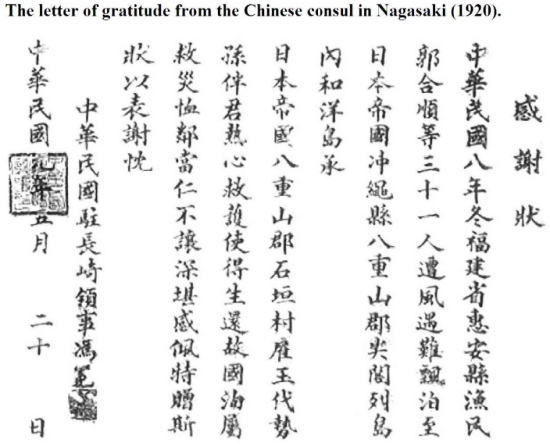 The letter of gratitude from the Chinese consul in Nagasaki (1920).
感謝狀
中華民國八年冬福建省惠安縣漁民
郭合順等三十一人遭風遇難飄泊至
日本帝國冲繩縣八重山郡尖閣列島
內和洋島承
日本帝國八重山郡石垣村雇玉代勢
孫伴君熱心救護使得生還故國洵屬
救災恤鄰當仁不讓深堪感佩特贈斯
狀以表謝忱
中華民國駐長崎領事馮冕
中華民國年五月二十日